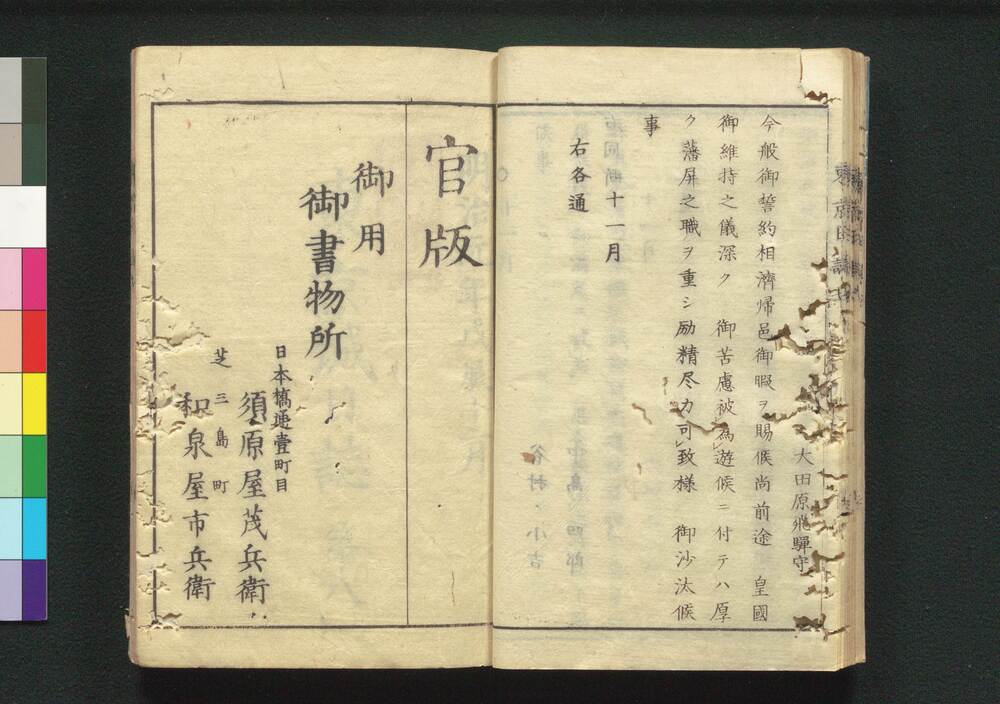 大田原飛驒守
今般御誓約相濟帰邑御暇ヲ賜候尚前途　皇國
御維持之儀深ク　御苦慮被為遊候ニ付テハ厚
ク藩屏之職ヲ重シ励精尽力可致様　御沙汰候
事
十一月
右各通
官版
御用
御書物所
日本橋通壹町目
須原屋茂兵衛
芝三島町
和泉屋市兵衛